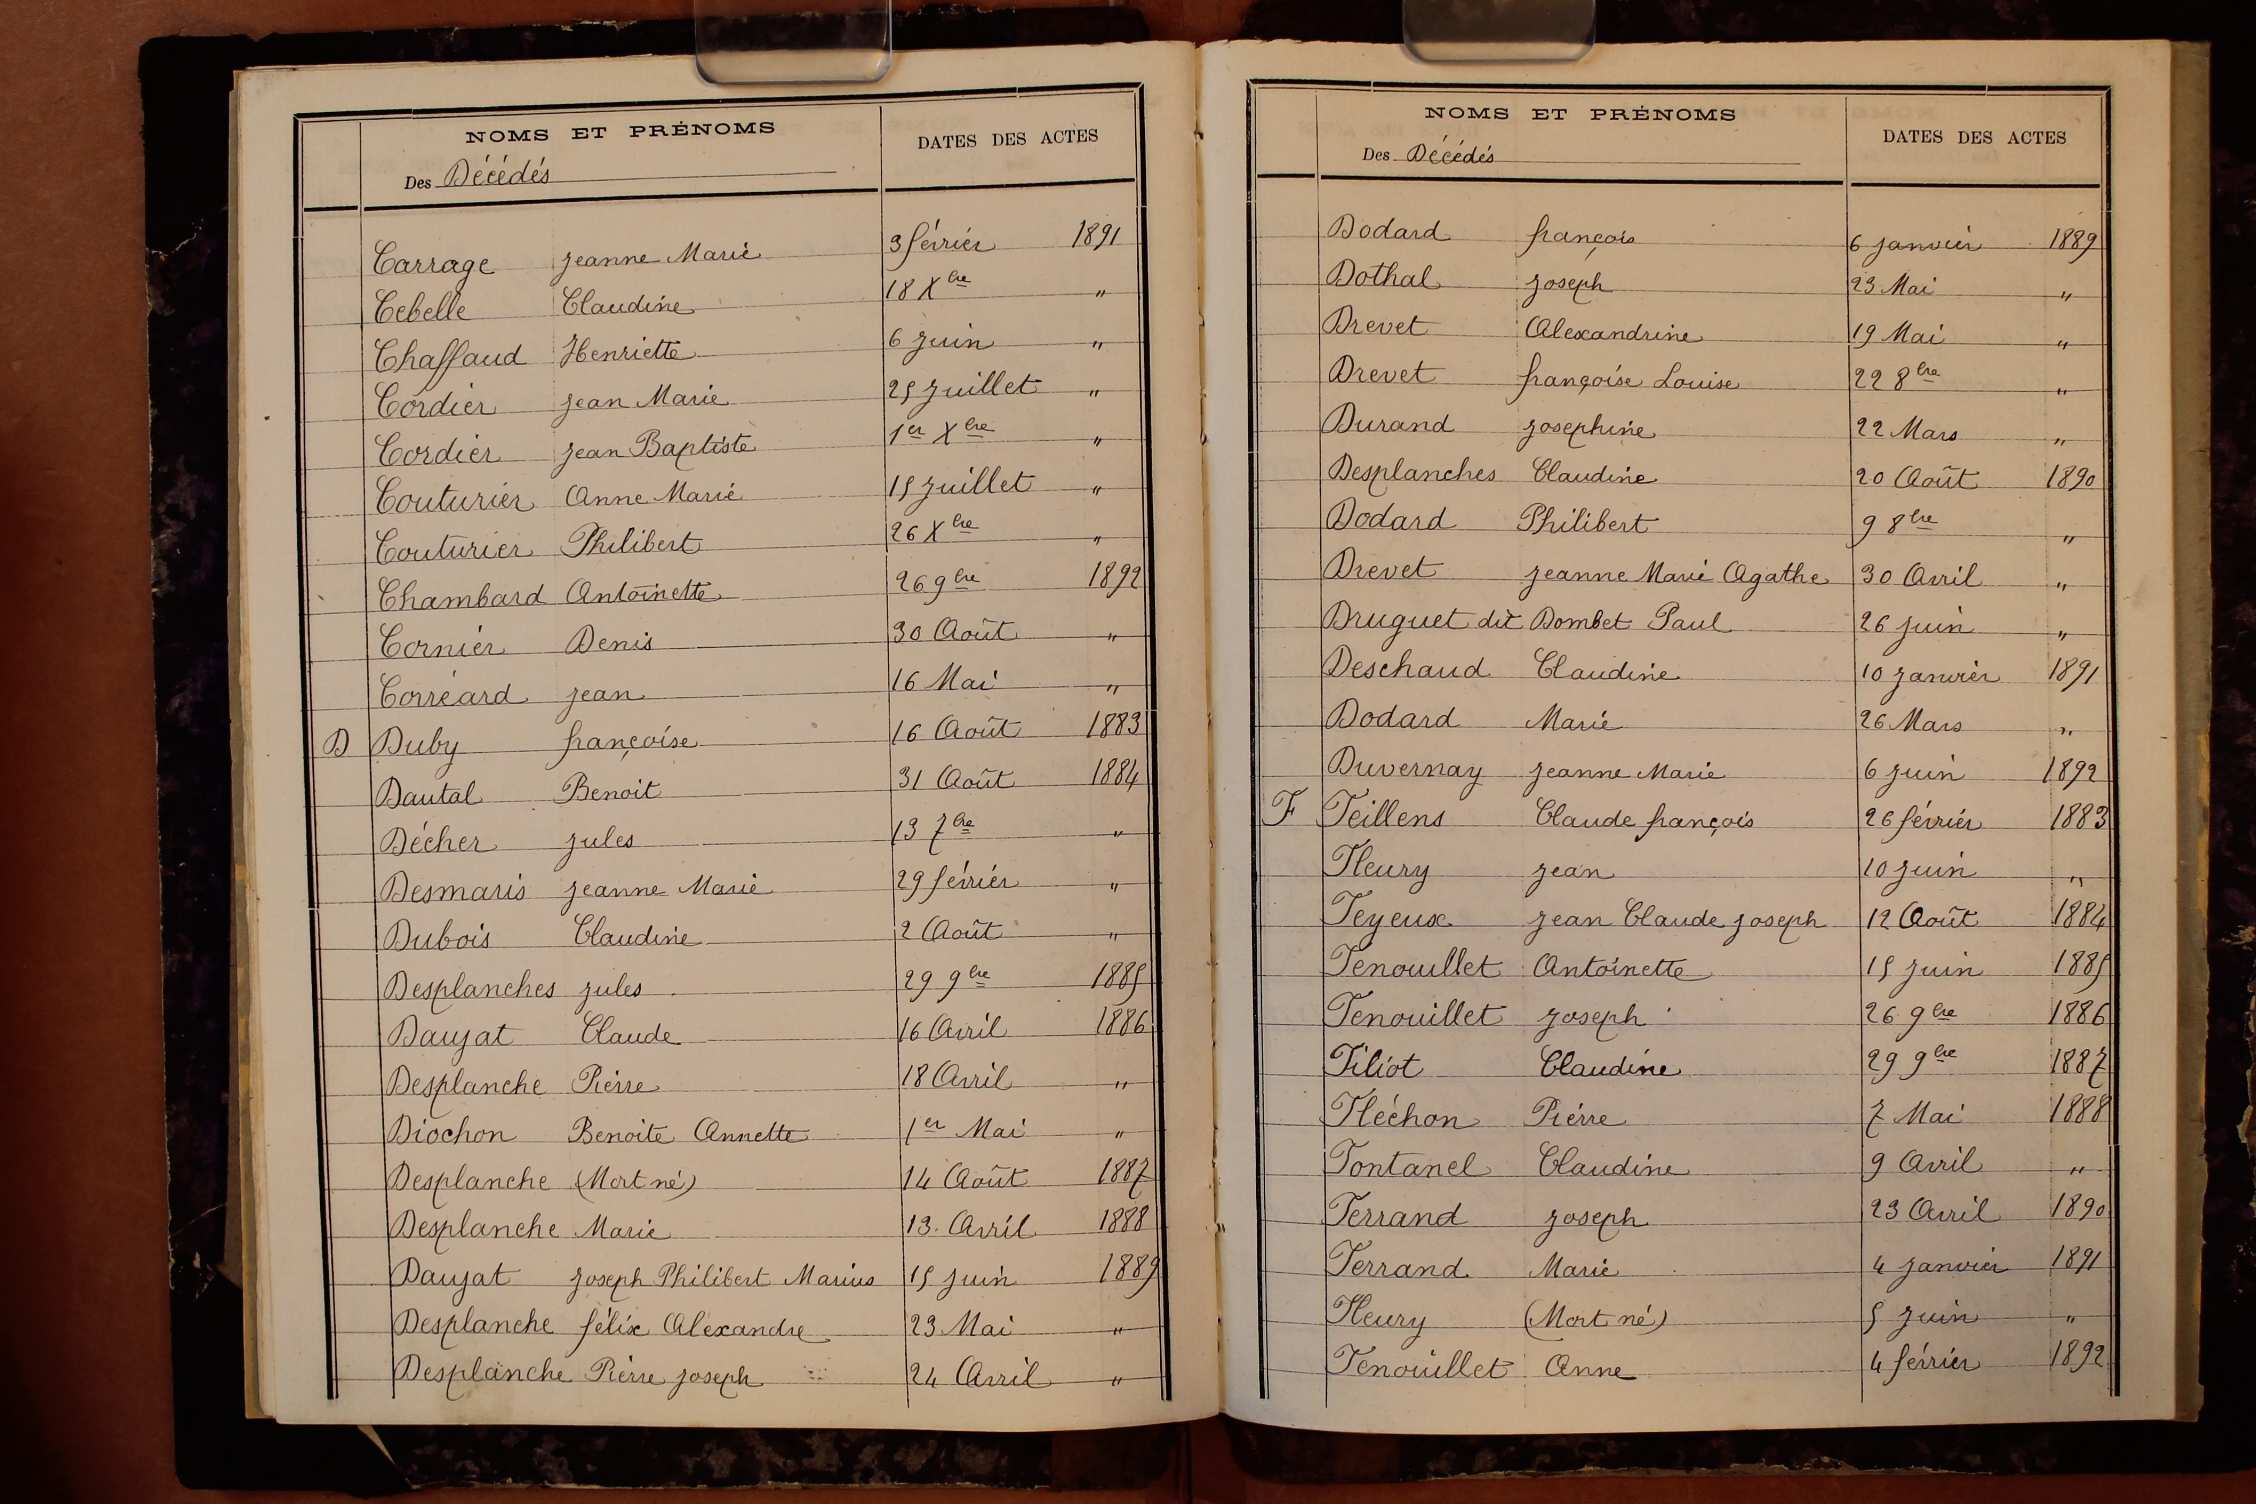 NOMS ET PRÉNOMS DATES DES ACTES
Des Décédés
Carrage Jeanne Marie 3 février 1891
Cebelle Claudine 18 Xbre "
Chaffaud Henriette 6 Juin "
Cordier Jean Marie 25 Juillet "
Cordier Jean Baptiste 1er Xbre "
Couturier Anne Marie 15 Juillet "
Couturier Philibert 26 Xbre "
Chambard Antoinette 26 9bre 1892
Cornier Denis 30 Août "
Corréard Jean 16 Mai "
D Duby françoise 16 Août 1883
Dautal Benoit 31 Août 1884
Décher Jules 13 7bre "
Desmaris Jeanne Marie 29 février "
Dubois Claudine 2 Août "
Desplanches Jules 29 9bre 1885
Daujat Claude 16 Avril 1886
Desplanche Pierre 18 Avril "
Diochon Benoite Annette 1er Mai "
Desplanche (Mort né) 14 Août 1887
Desplanche Marie 13 Avril 1888
Daujat Joseph Philibert Marius 15 Juin 1889
Desplanche félix Alexandre 23 Mai "
Desplanche Pierre Joseph 24 Avril "
NOMS ET PRÉNOMS DATES DES ACTES
Des Décédés
Dodard françois 6 Janvier 1889
Dothal Joseph 23 Mai "
Drevet Alexandrine 19 Mai "
Drevet françoise Louise 22 8bre "
Durand Josephine 22 Mars "
Desplanches Claudine 20 Août 1890
Dodard Philibert 9 8bre "
Drevet Jeanne Marie Agathe 30 Avril "
Druguet dit Dombet Paul 26 Juin "
Deschaud Claudine 10 Janvier 1891
Dodard Marie 26 Mars "
Duvernay Jeanne Marie 6 Juin 1892
F Feillens Claude françois 26 février 1883
Fleury Jean 10 Juin "
Feyeux Jean Claude Joseph 12 Août 1884
Fenouillet Antoinette 15 Juin 1885
Fenouillet Joseph 26 9bre 1886
Filiot Claudine 29 9bre 1887
Fléchon Pierre 7 Mai 1888
Fontanel Claudine 9 Avril "
Ferrand Joseph 23 Avril 1890
Ferrand Marie 4 Janvier 1891
Fleury (Mort né) 5 Juin "
Fenouillet Anne 4 février 1892